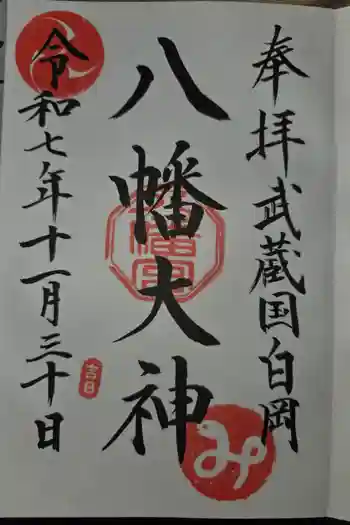 奉拝武蔵国白岡
八幡大神
令和七年十一月三十日
吉日